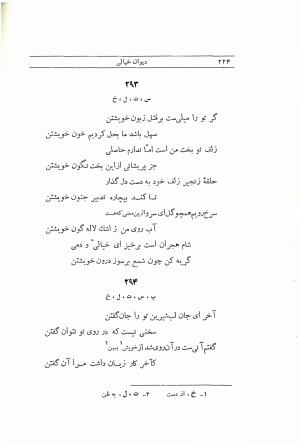 ۲۲۴ دیوان خیالی
۲۹۳
س ، ت ، ل ، خ
گر تو را میلی‌ست بر قتل زبون خویشتن
سهل باشد ما بحل کردیم خون خویشتن
زلف تو بخت من است امّا ندارم حاصلی
جز پریشانی از این بخت نگون خویشتن
حلقهٔ زنجیر زلف خود به دست دل گذار
تا کند بیچاره تدبیر جنون خویشتن
سرخ رویم همچو گل ای سرو از این معنی که هست
آب روی من ز اشک لاله گون خویشتن
شام هجران است برخیز ای خیالی و دمی
گریه کن چون شمع بر سوز درون خویشتن
۲۹۴
پ ، س ، ت ، ل ، خ
آخر ای جان لب شیرین تو را جان گفتن
سخنی نیست که در روی تو نتوان گفتن
گفتم آنی‌ست در آن روی شد از خویش۱ ببین۲
کآخر کار زیان داشت مرا آن گفتن
۱ـ خ، از دست ۲ـ ت، ل، به ظن